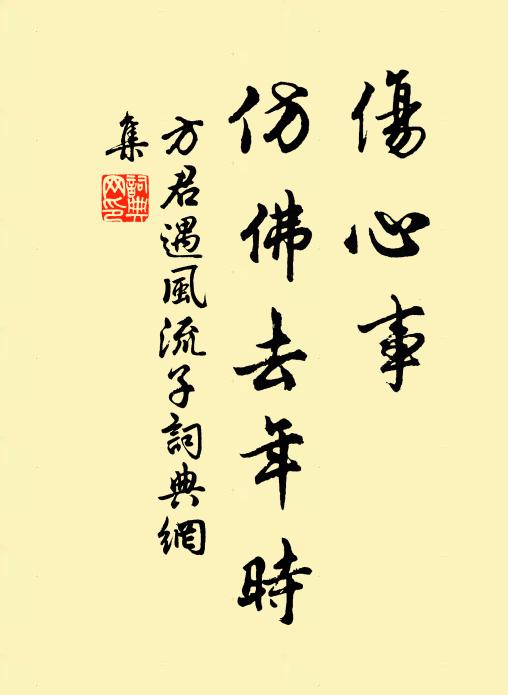 傷心事
仿佛去年時
方君遇風流子詞典網
集
詞典
网印